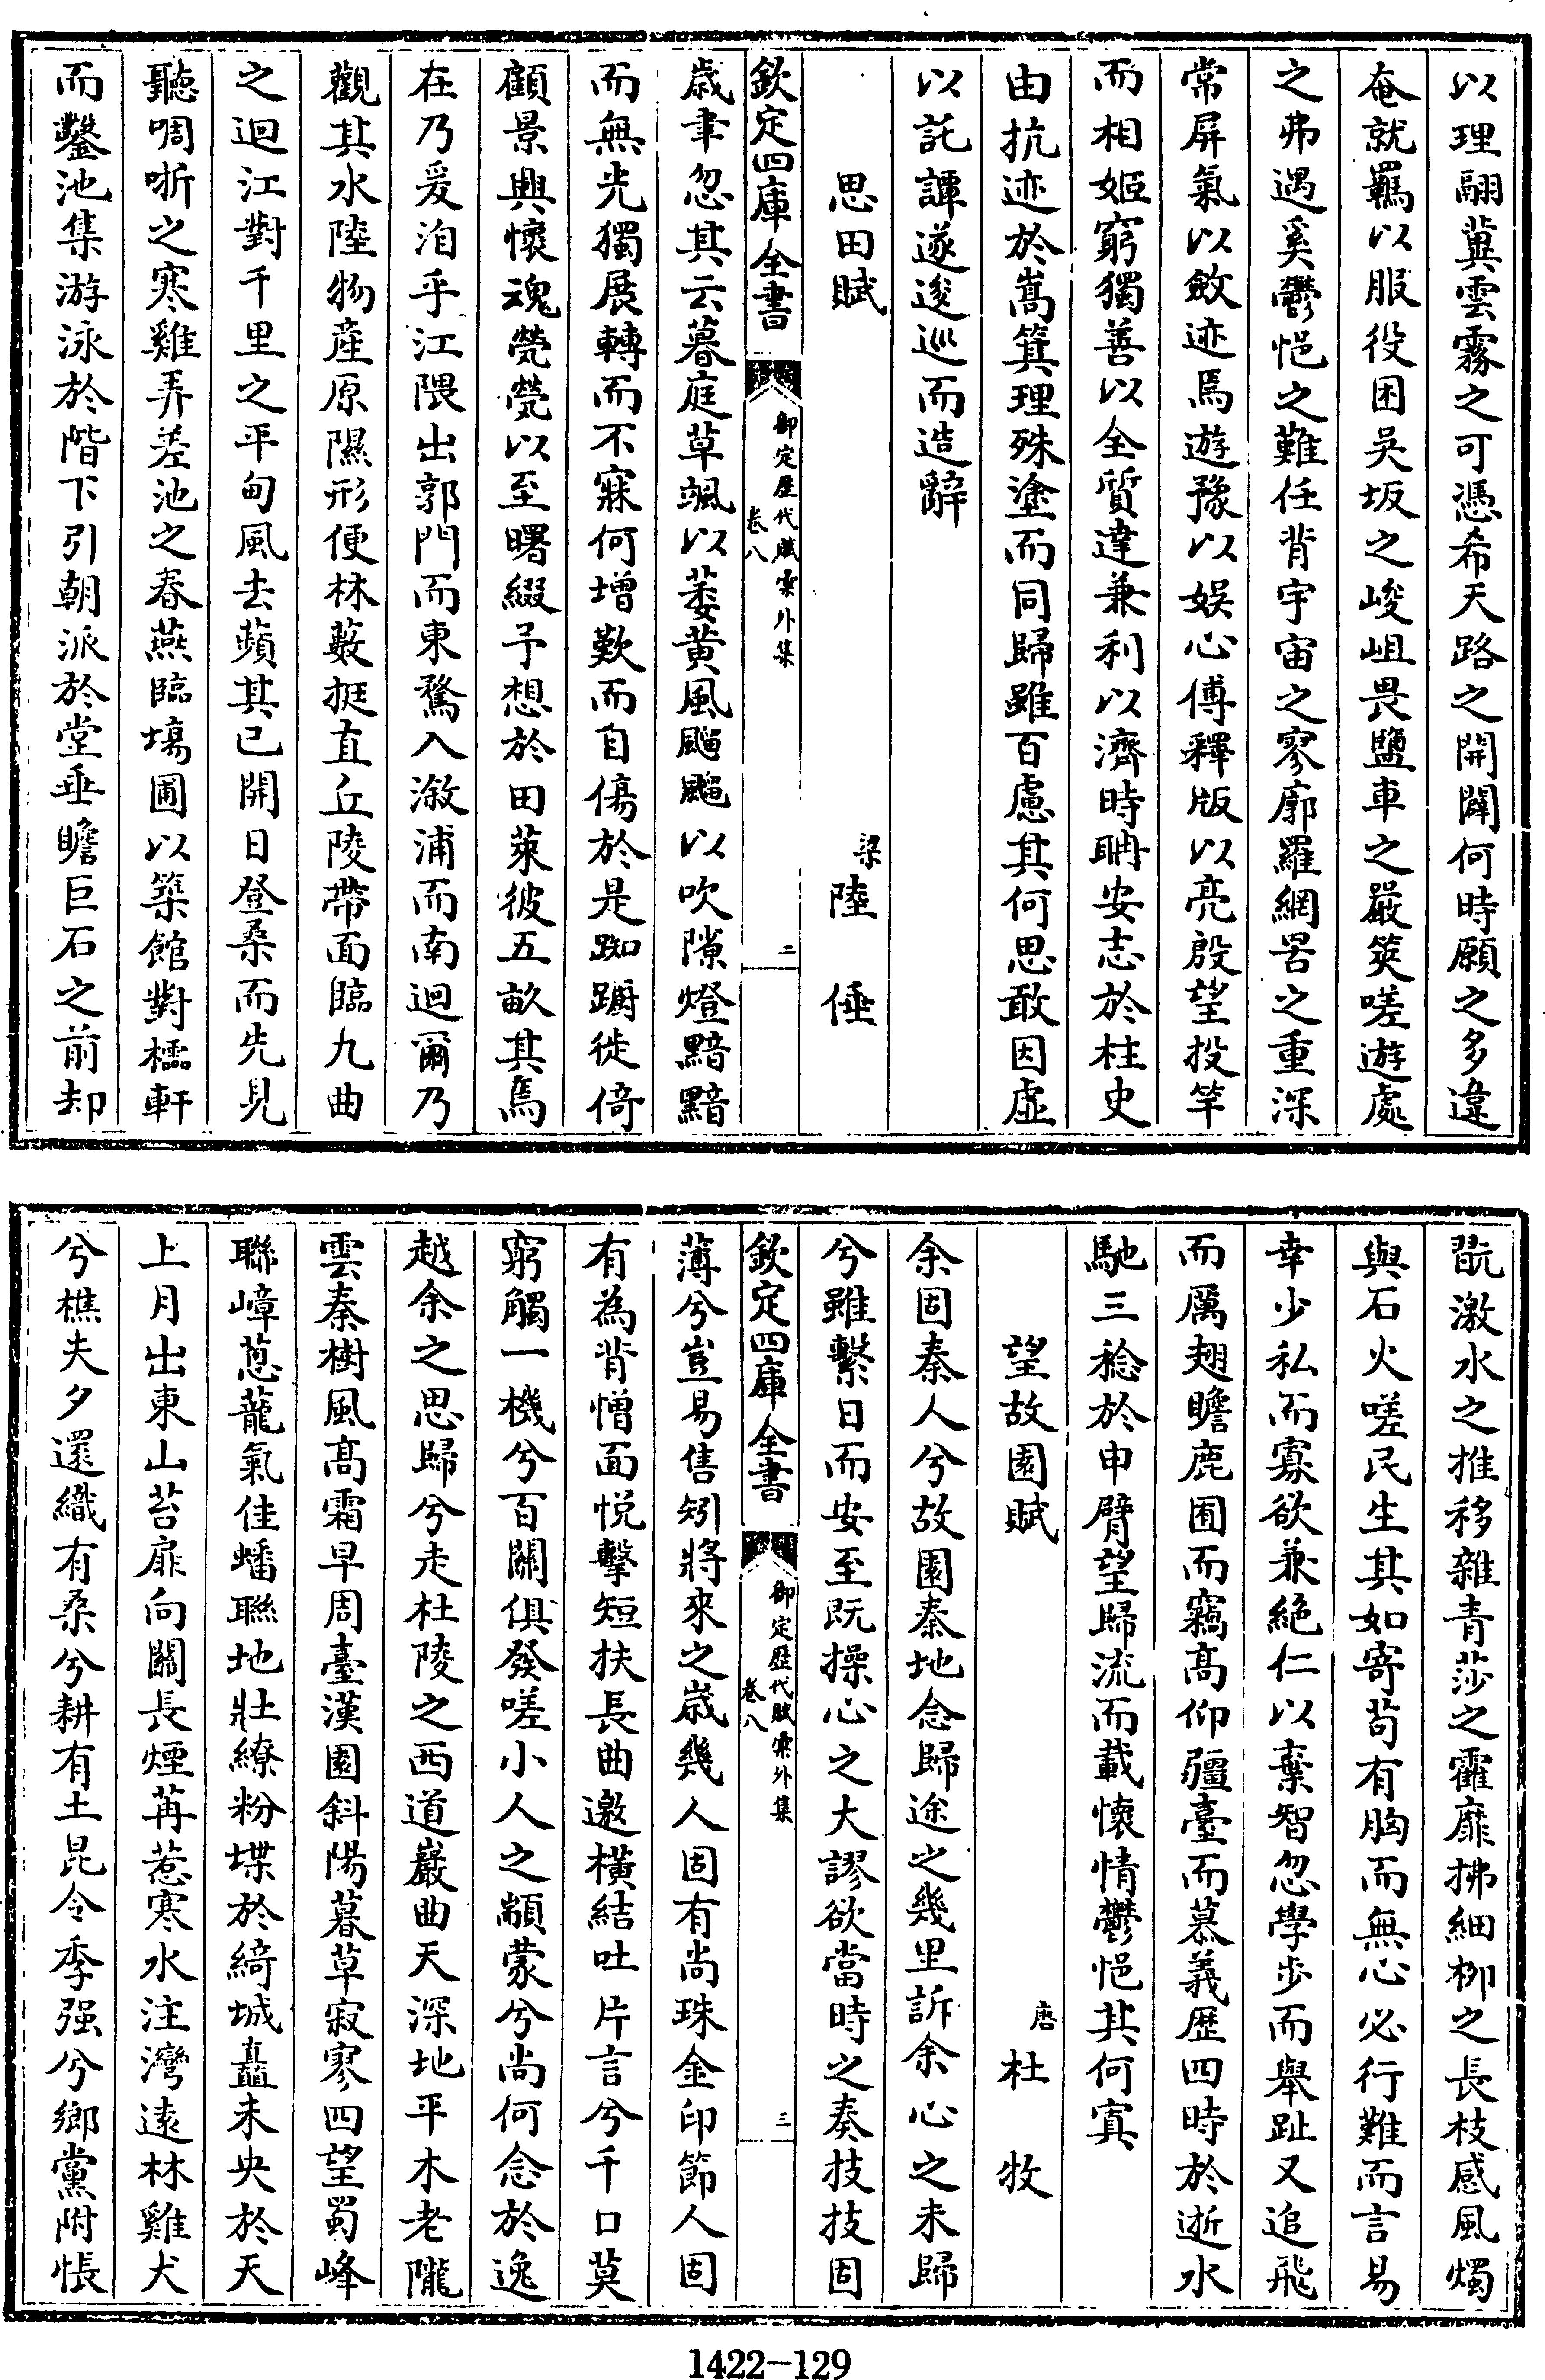 以理翮冀雲霧之可憑希天路之開闢何時願之多違
奄就羈以服役困吳坂之峻岨畏鹽車之嚴筴嗟遊處
之弗遇奚鬱悒之難任背宇宙之寥廓羅網罟之重深
常屏氣以斂迹焉遊豫以娛心傅釋版以亮殷望投竿
而相姬窮獨善以全質達兼利以濟時聃安志於柱史
由抗迹於嵩箕理殊塗而同歸雖百慮其何思敢因虛
以託譚遂逡巡而造辭
思田賦　梁陸倕
欽定四庫全書　御定歷代賦彙外集　卷八　二
歲聿忽其云暮庭草颯以萎黃風飀飀以吹隙燈黯黯
而無光獨展轉而不寐何增歎而自傷於是踟躕徙倚
顧景興懷魂煢煢以至曙綴予想於田萊彼五畝其焉
在乃爰洎乎江隈出郭門而東騖入漵浦而南迴爾乃
觀其水陸物產原隰形便林藪挺直丘陵帶面臨九曲
之迴江對千里之平甸風去蘋其已開日登桑而先見
聽啁哳之寒雞弄差池之春燕臨塲圃以築館對櫺軒
而鑿池集游泳於階下引朝派於堂垂瞻巨石之前却
翫激水之推移雜青莎之霍靡拂細柳之長枝感風燭
與石火嗟民生其如寄苟有胸而無心必行難而言易
幸少私而寡欲兼絕仁以棄智忽學步而舉趾又追飛
而厲翅瞻鹿囿而竊高仰疆臺而慕義歷四時於逝水
馳三稔於申臂望歸流而載懷情鬱悒其何寘
望故園賦　唐杜牧
余固秦人兮故園秦地念歸途之幾里訴余心之未歸
兮雖繫日而安至既操心之大謬欲當時之奏技技固
欽定四庫全書　御定歷代賦彙外集　卷八　三
薄兮豈易售矧將來之歲幾人固有尚珠金印節人固
有為背憎面悅擊短扶長曲邀橫結吐片言兮千口莫
窮觸一機兮百關俱發嗟小人之顓蒙兮尚何念於逸
越余之思歸兮走杜陵之西道巖曲天深地平木老隴
雲秦樹風高霜早周臺漢園斜陽暮草寂寥四望蜀峰
聯嶂蔥蘢氣佳蟠聯地壯繚粉堞於綺城矗未央於天
上月出東山苔扉向關長煙苒惹寒水注灣遠林雞犬
兮樵夫夕還織有桑兮耕有土昆令季强兮鄉黨附悵
1422-129